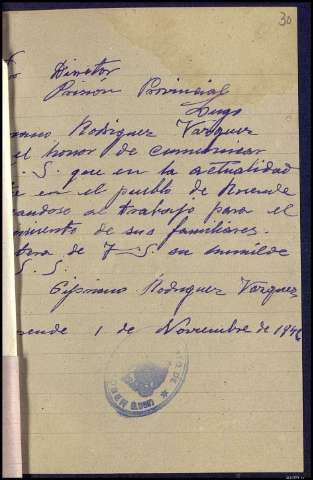 30
Director
Prisión Provincial
Lugo
Rodriguez Vazquez
el honor de comunicar
S. que en la actualidad
en el pueblo de
al trabajo para el
de sus familiares.
de S. su humilde
S. S.
Cipriano Rodriguez Vazquez
1 de Noviembre de 194